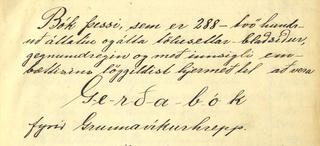 Bók þessi, sem er 288 - tvö hundr-
uð áttatíu og átta tölusettar blaðsíður,
gegnumdregin og með innsigli em-
bættisins löggildist hjermeð til að vera
G-e-r-ð-a-b-ó-k
fyrir Grunnavíkurhrepp.